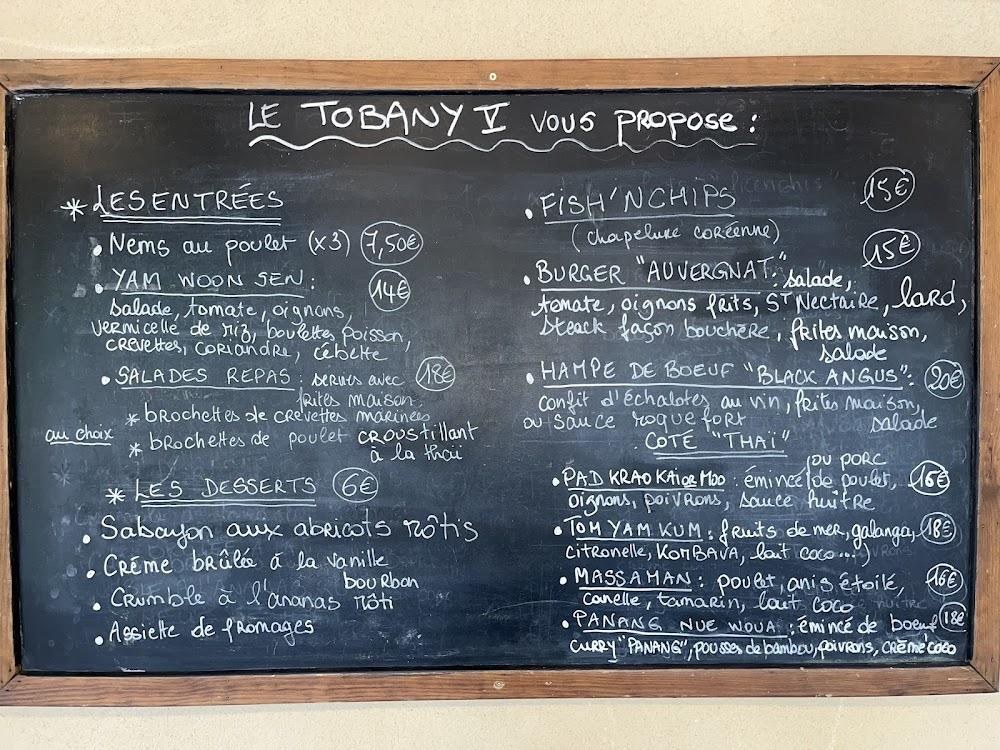 LE TOBANY V VOUS PROPOSE :
* LES ENTRÉES
• Nems au poulet (x3) 7,50€
• YAM WOON SEN : 14€
salade, tomate, oignons,
vermicelle de riz, boulettes poisson,
crevettes, coriandre, cébette
• SALADES REPAS : servies avec 18€
frites maison
* brochettes de crevettes marinées
au choix
* brochettes de poulet croustillant
à la thaï
* LES DESSERTS 6€
• Sabayon aux abricots rôtis
• Créme brûlée à la vanille
bourbon
• Crumble à l'ananas rôti
• Assiette de fromages
• FISH'N CHIPS 15€
(chapelure coréenne)
• BURGER "AUVERGNAT": salade, 15€
tomate, oignons frits, ST Nectaire, lard,
steack façon bouchère, frites maison,
salade
• HAMPE DE BOEUF "BLACK ANGUS": 20€
confit d'échalotes au vin, frites maison,
ou sauce roquefort salade
COTÉ "THAÏ"
ou PORC
• PAD KRAO KAI OR MOO : émincé de poulet, 16€
oignons, poivrons, sauce huître
• TOM YAM KUM : fruits de mer, galanga, 18€
citronelle, KOMBAVA, lait coco...
• MASSAMAN : poulet, anis étoilé, 16€
canelle, tamarin, lait coco
• PANANG NUE WOUA : émincé de boeuf 18€
CURRY "PANANG", pousses de bambou, poivrons, CRÈME COCO